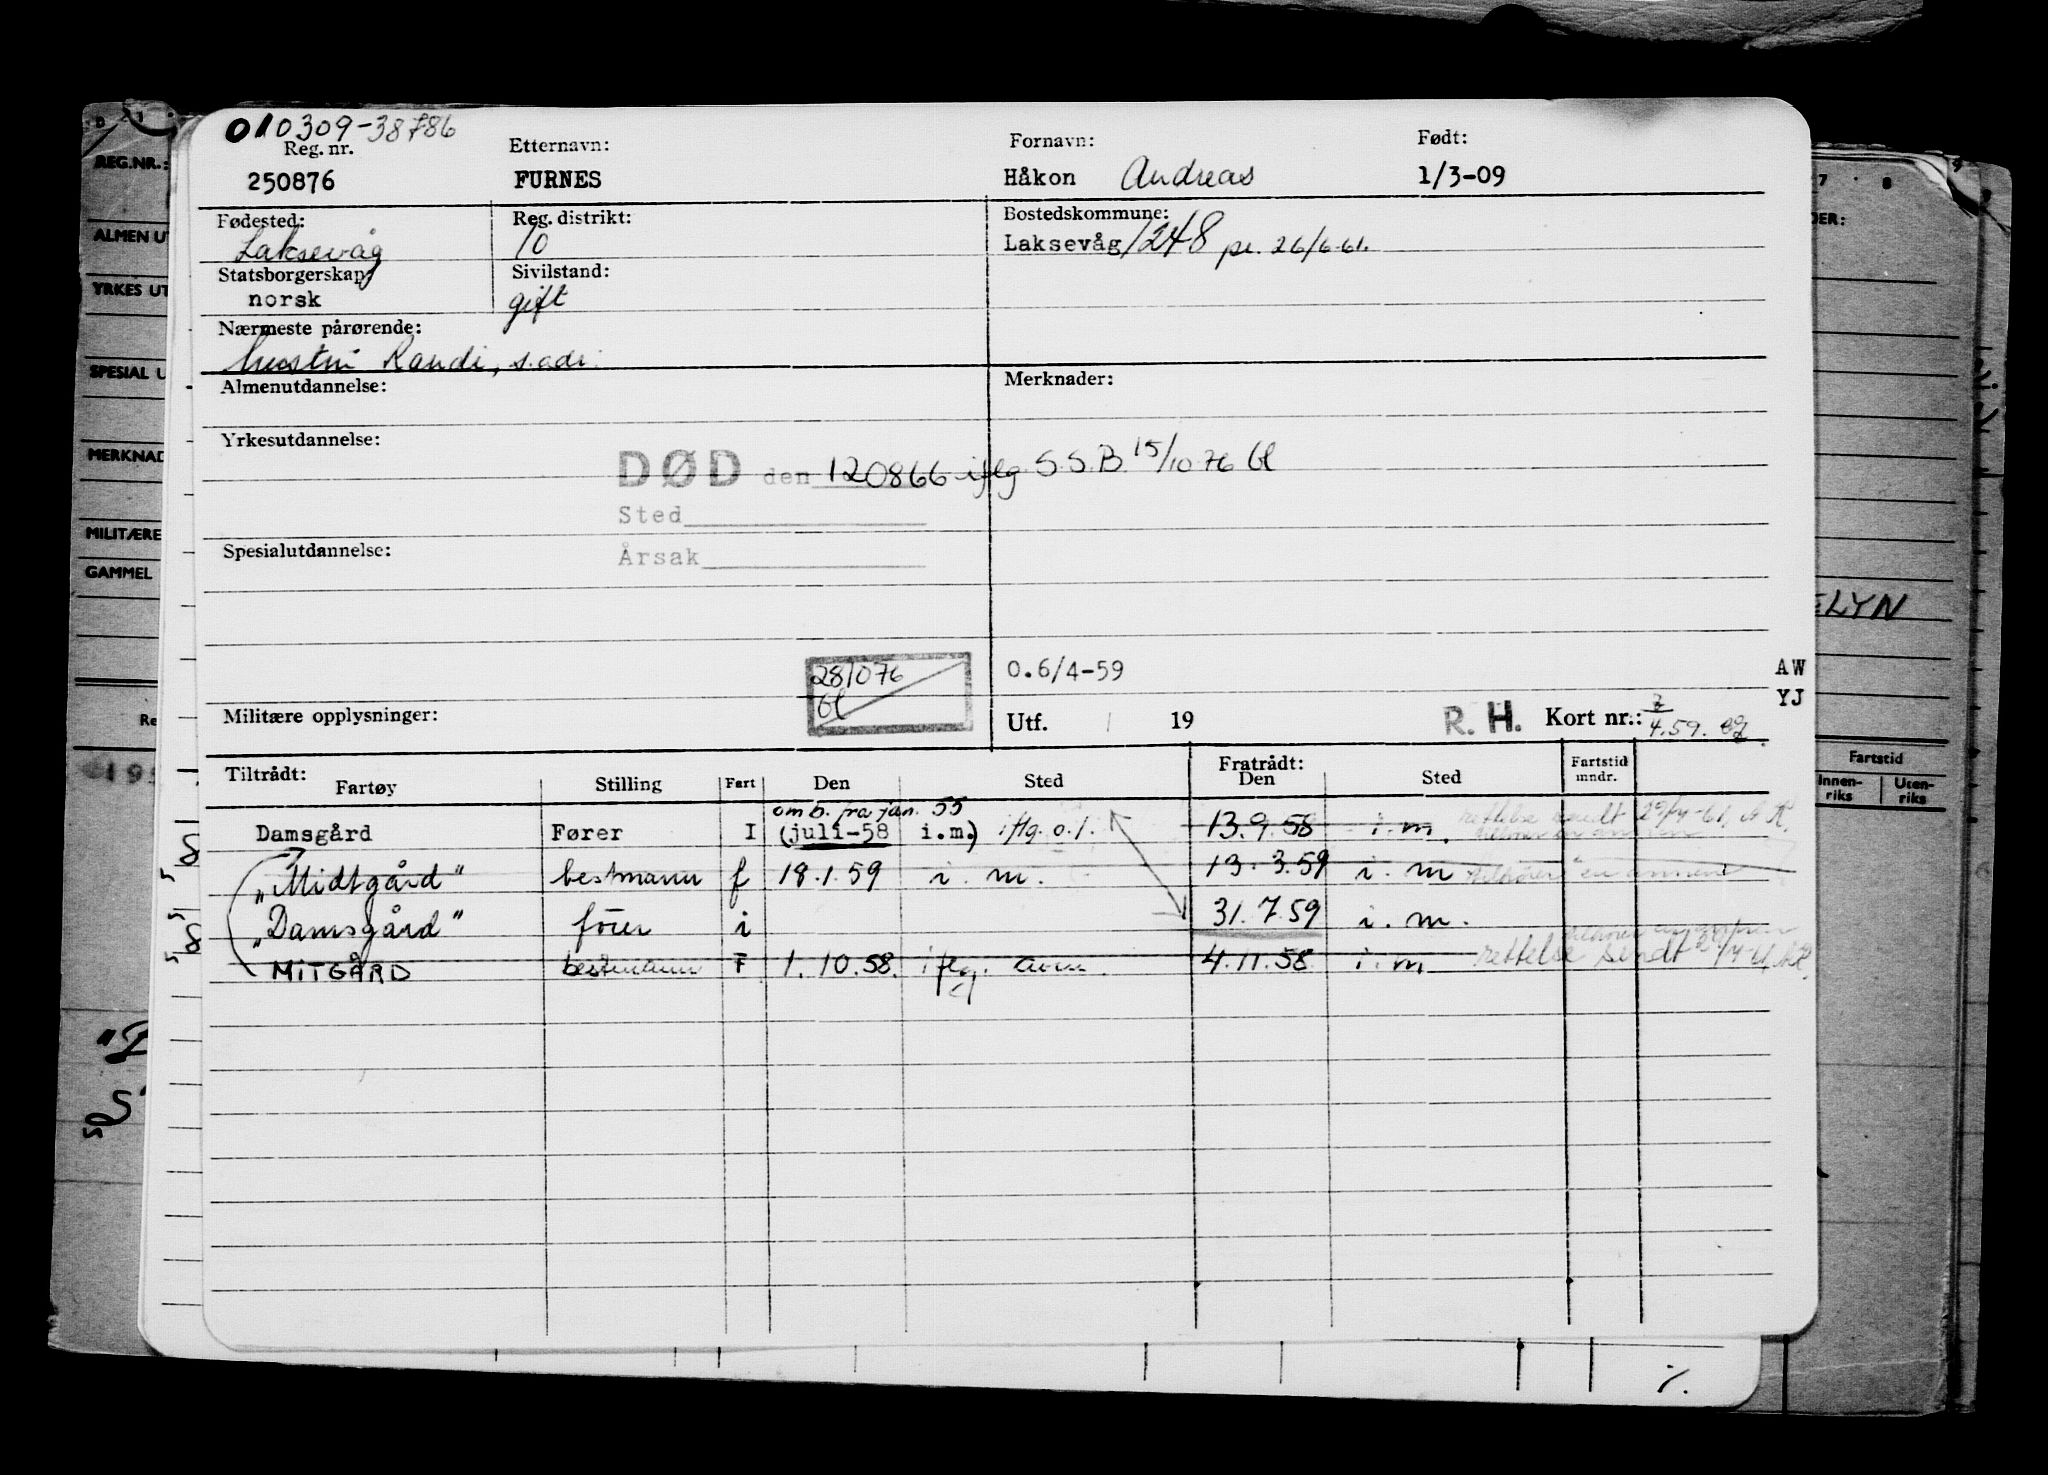 010309-38786
Reg. nr. Etternavn: Fornavn: Født:
250876 FURNES Håkon Andreas 1/3-09
Fødested: Reg. distrikt: Bostedskommune:
Laksevåg 10 Laksevåg/1248 pr. 26/6-61.
Statsborgerskap: Sivilstand:
norsk gift
Nærmeste pårørende:
hustru Randi, s.adr.
Almenutdannelse: Merknader:
Yrkesutdannelse:
DØD den 120866 iflg. S.S.B. 15/10 76
Sted
Spesialutdannelse: Årsak
281076
0.6/4-59 AW
YJ
Militære opplysninger: Utf. 19 R. H. Kort nr.: 4.59.
Tiltrådt: Fratrådt: Fartstid
Fartøy Stilling Fart Den Sted Den Sted mndr.
omb. fra jan. 55
Damsgård Fører I (juli-58 i.m.) iflg. o.l. 13.9.58 i.m. rettelse sendt
"Midtgård" bestmann f 18.1.59 i.m. 13.3.59 i.m
"Damsgård" fører i 31.7.59 i.m.
MITGÅRD bestmann F 1.10.58. iflg. 4.11.58 i.m rettelse sendt
REG.NR.:
ALMEN UT
YRKES UT
SPESIAL U
MERKNAD
MILITÆRE
GAMMEL
Re
195
7 8
DER:
ELYN
Fartstid
Innen-
riks
Uten-
riks